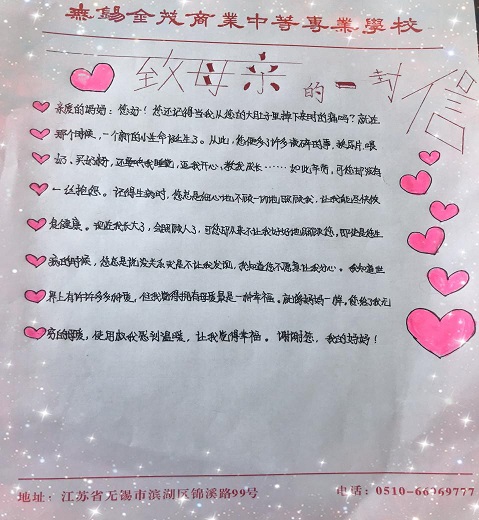 無錫金茂商業中等專業學校
致母亲的一封信
亲爱的妈妈：您好！您还记得当我从您的大肚子里掉下来时的痛吗？就在
那个时候，一个新的小生命诞生了。从此，您便多了许多琐碎的事，换尿片、喂
奶、买奶粉，还要哄我睡觉，逗我开心，教我成长……如此年复，可您却没有
一丝抱怨。记得生病时，您总是细心地不顾一切地照顾我，让我能尽快恢
复健康。现在我长大了，会照顾人了，可您却从来不让我好好地照顾您，即使是您生
病的时候，您总是说没关系或是不让我发现，我知道您不愿意让我分心。我知道世
界上有许许多多种爱，但我觉得拥有母爱是一种幸福。就像妈妈一样，您给了我无
穷的母爱，使用权我感到温暖，让我觉得幸福。谢谢您，我的妈妈！
地址：江苏省无锡市滨湖区锦溪路99号
电话：0510-66369777